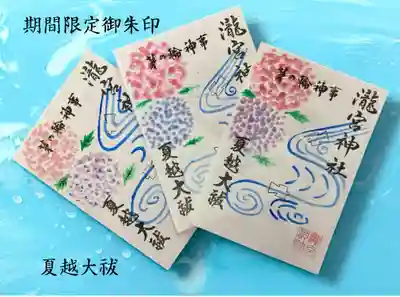 期間限定御朱印
茅の輪神事
瀧宮神社
夏越大祓
茅の輪神事
瀧宮神社
夏越大祓
茅の輪神事
瀧宮神社
夏越大祓
夏越大祓